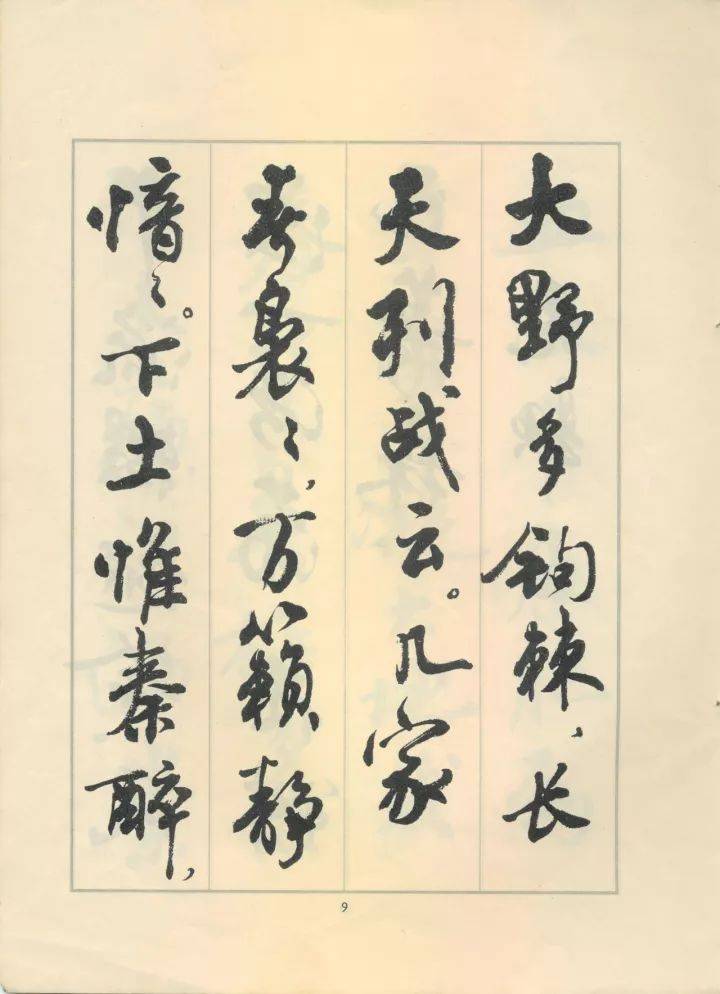 大野多钩棘，长
天列战云。几家
春袅々，万籁静
愔々。下土惟秦醉，
9